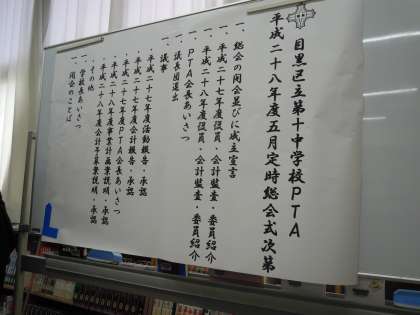 目黒区立第十中学校PTA
平成二十八年度五月定時総会式次第
一、総会の開会並びに成立宣言
一、平成二十七年度役員・会計監査・委員紹介
一、平成二十八年度役員・会計監査・委員紹介
一、PTA会長あいさつ
一、議長団選出
一、議事
・平成二十七年度活動報告・承認
・平成二十七年度会計報告・承認
・平成二十七年度PTA会長あいさつ
・平成二十八年度事業計画案説明・承認
・平成二十八年度会計予算案説明・承認
・その他
一、学校長あいさつ
一、閉会のことば